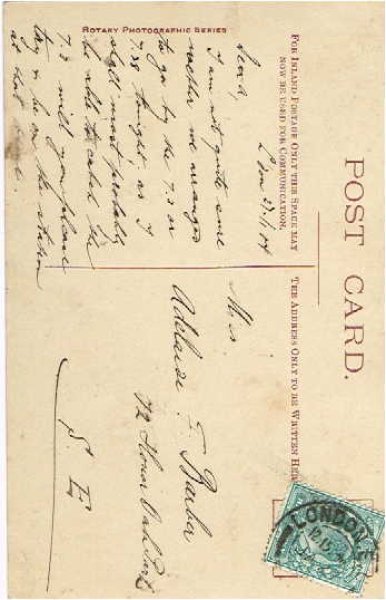 POST CARD.
FOR INLAND POSTAGE ONLY THIS SPACE MAY
NOW BE USED FOR COMMUNICATION.
THE ADDRESS ONLY TO BE WRITTEN HERE
27/1/04
Dear A,
I am not quite sure
whether we arranged
to go by the 7.8 or
7.38 tonight, as I
shall most probably
be able to catch the
7.8 will you please
try & be on the station
at that
ROTARY PHOTOGRAPHIC SERIES
Miss
Adelaide E. Barber
72 Honor Oak Park
S. E
LONDON